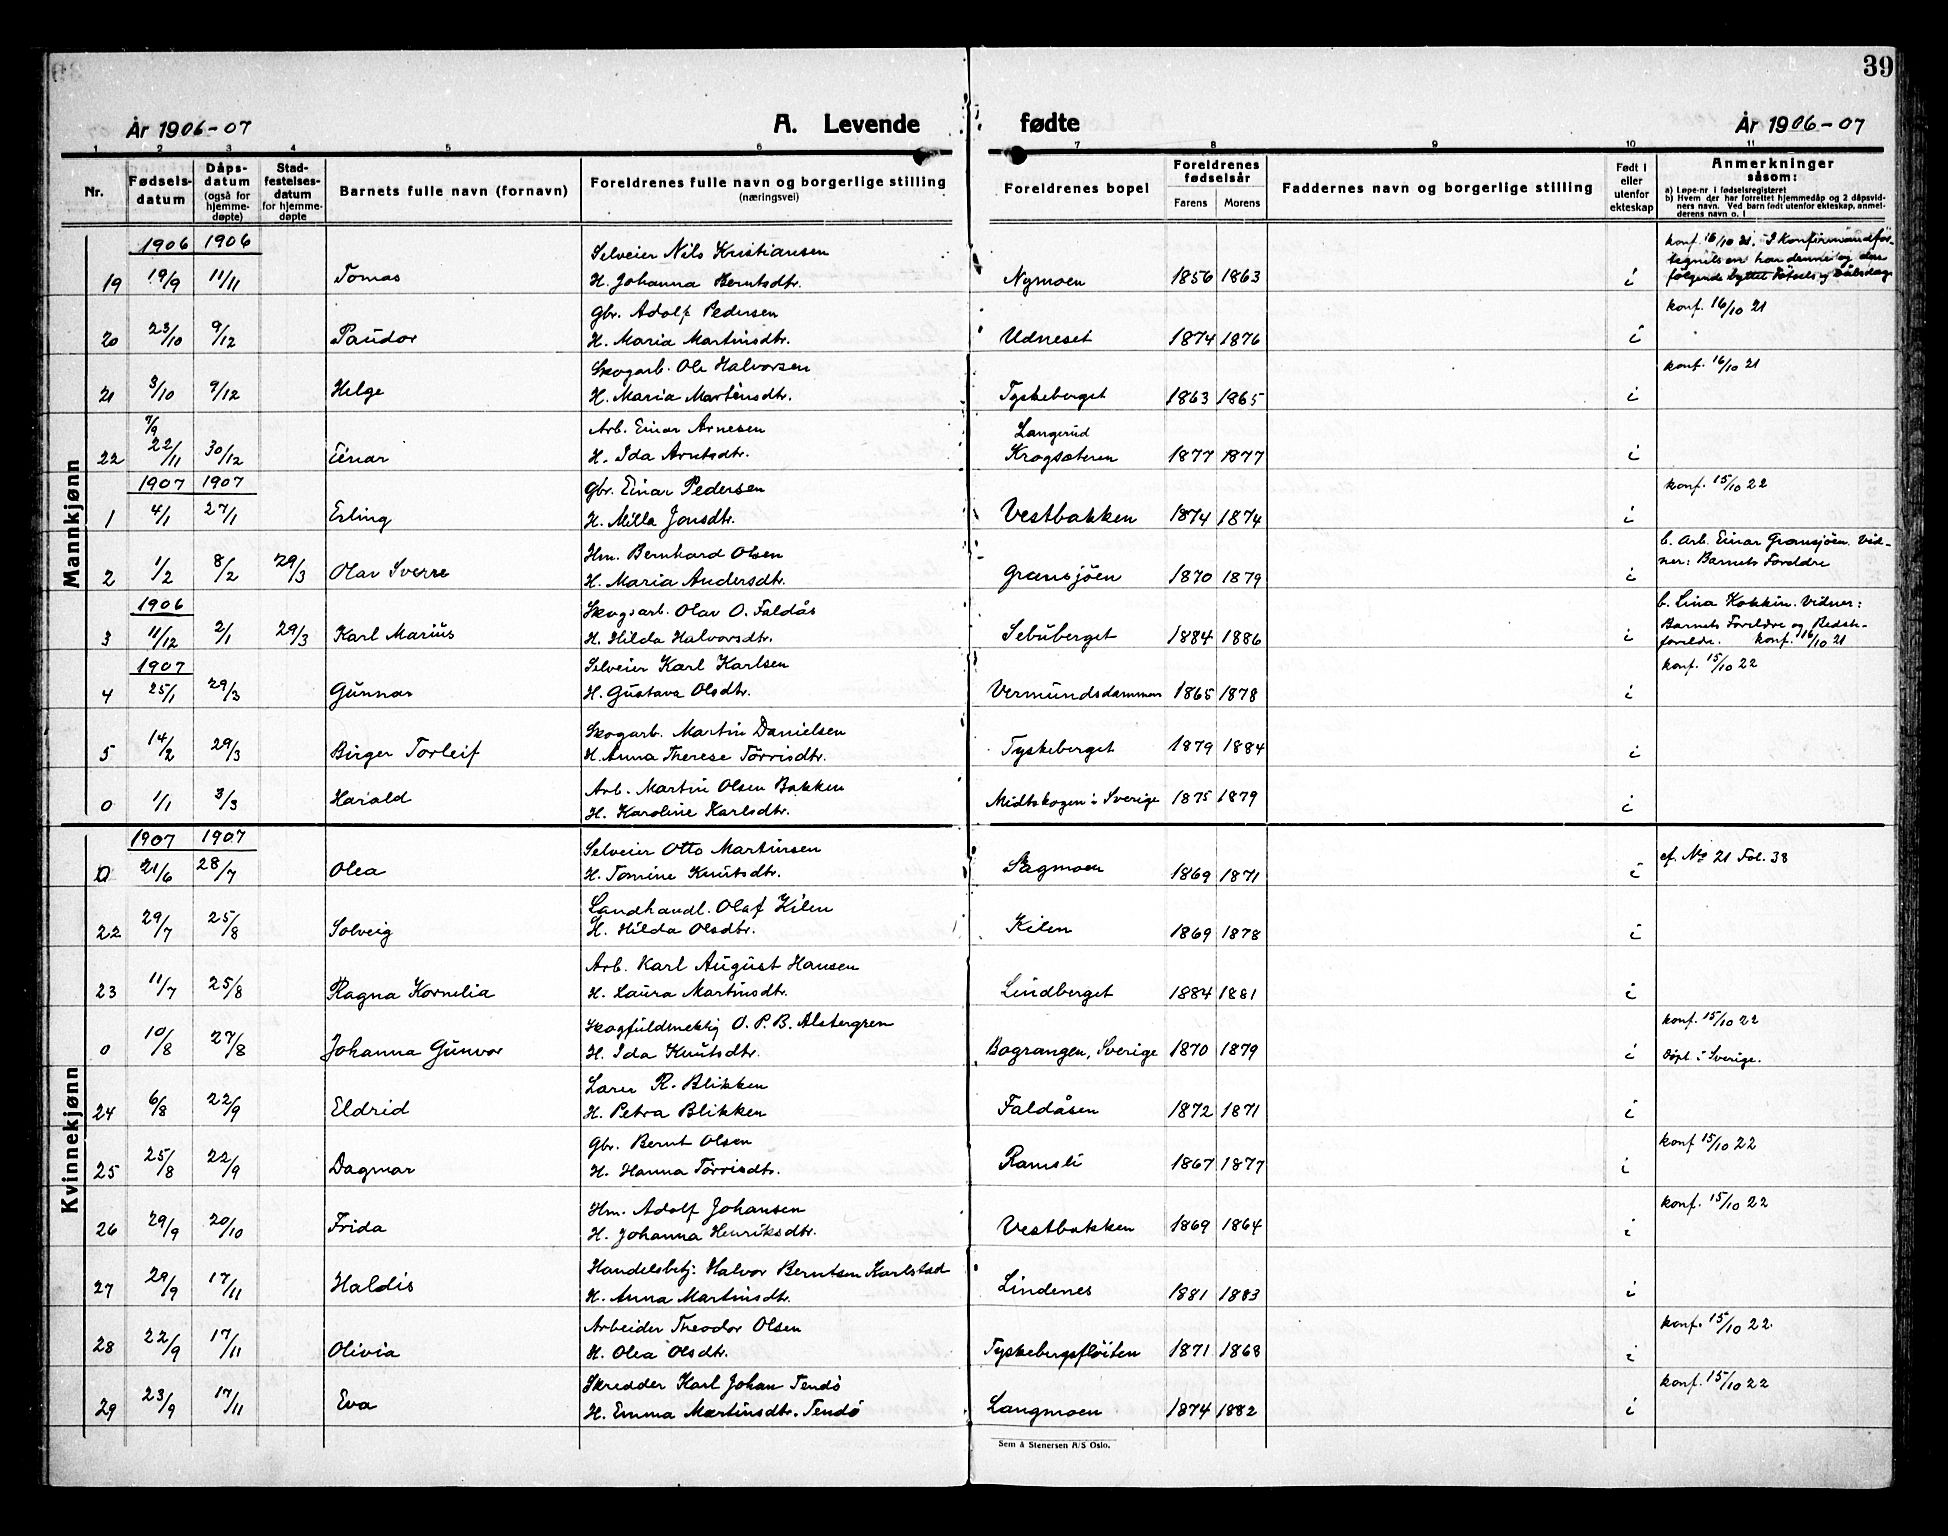 39
År 1906-07 A. Levende fødte År 1906-07
1 2 3 4 5 6 7 8 9 10 11
Nr. | Fødsels-datum | Dåps-datum (også for hjemme-døpte) | Stad-festelses-datum for hjemme-døpte | Barnets fulle navn (fornavn) | Foreldrenes fulle navn og borgerlige stilling (næringsvei) | Foreldrenes bopel | Foreldrenes fødselsår Farens Morens | Faddernes navn og borgerlige stilling | Født i eller utenfor ekteskap | Anmerkninger såsom:
a) Løpe-nr i fødselsregisteret
b) Hvem der har forrettet hjemmedåp og 2 dåpsvid-
ners navn. Ved barn født utenfor ekteskap, anmel-
derens navn o. l
Mannkjønn
1906 1906 Selveier Nils Kristiansen konf. 16/10 21. I Konfirmandfor-
19 19/9 11/11 Tomas H. Johanna Berntsdtr. Nymoen 1856 1863 i
følgende byttet Fødsels og Dåbsdag
Gbr. Adolf Pedersen konf. 16/10 21
20 23/10 9/12 Paudor H. Maria Martinsdtr. Udneset 1874 1876 i
Skogarb. Ole Halvorsen konf. 16/10 21
21 3/10 9/12 Helge H. Maria Martinsdtr. Tyskeberget 1863 1865 i
7/9 Arb. Einar Arnesen Langerud
22 22/11 30/12 Einar H. Ida Arntsdtr. Krogsæteren 1877 1877 i
1907 1907 Gbr. Einar Pedersen konf. 15/10 22
1 4/1 27/1 Erling H. Milla Jonsdtr. Vestbakken 1874 1874 i
Hm. Bernhard Olsen b. Arb. Einar Grænsjöen. Vid-
2 1/2 8/2 29/3 Olav Sverre H. Maria Andersdtr. Grænsjöen 1870 1879 i ner: Barnets Foreldre
1906 Skogsarb. Olav O. Faldås b. Lina Hokkin. Vidner:
3 11/12 2/1 29/3 Karl Marius H. Hilda Halvorsdtr. Sebuberget 1884 1886 i Barnets Foreldre og Bedste-
foreldr. konf. 16/10 21
1907 Selveier Karl Karlsen konf. 15/10 22
4 25/1 29/3 Gunnar H. Gustava Olsdtr. Vermundsdammen 1865 1878 i
Skogarb. Martin Danielsen
5 14/2 29/3 Birger Torleif H. Anna Therese Törrisdtr. Tyskeberget 1879 1884 i
Arb. Martin Olsen Bakken
0 1/1 3/3 Harald H. Karoline Karlsdtr. Midtskogen i Sverige 1875 1879 i
Kvinnekjønn
1907 1907 Selveier Otto Martinsen cf. No 21 Fol. 38
0 21/6 28/7 Olea H. Tomine Knutsdtr. Sagmoen 1869 1871 i
Landhandl. Olaf Kilen
22 29/7 25/8 Solveig H. Hilda Olsdtr. Kilen 1869 1878 i
Arb. Karl August Hansen
23 11/7 25/8 Ragna Kornelia H. Laura Martinsdtr. Lindberget 1884 1881 i
Skogfuldmektig O. P. B. Alstergren konf. 15/10 22
0 10/8 27/8 Johanna Gunvor H. Ida Knutsdtr. Bograngen, Sverige 1870 1879 i Döpt i Sverige.
Lærer R. Blikken
24 6/8 22/9 Eldrid H. Petra Blikken Faldåsen 1872 1871 i
Gbr. Bernt Olsen konf 15/10 22
25 25/8 22/9 Dagmar H. Hanna Törrisdtr. Ramsli 1867 1877 i
Hm. Adolf Johansen konf. 15/10 22
26 29/9 20/10 Frida H. Johanna Henriksdtr. Vestbakken 1869 1864 i
Handelsbetj: Halvor Berntsen Karlstad
27 29/9 17/11 Haldis H. Anna Martinsdtr. Lindenes 1881 1883 i
Arbeider Theodor Olsen konf. 15/10 22.
28 22/9 17/11 Olivia H. Olea Olsdtr. Tyskebergsflöiten 1871 1868 i
Skredder Karl Johan Tendö konf. 15/10 22
29 23/9 17/11 Eva H. Emma Martinsdtr. Tendö Langmoen 1874 1882 i
Sem & Stenersen A/S Oslo.